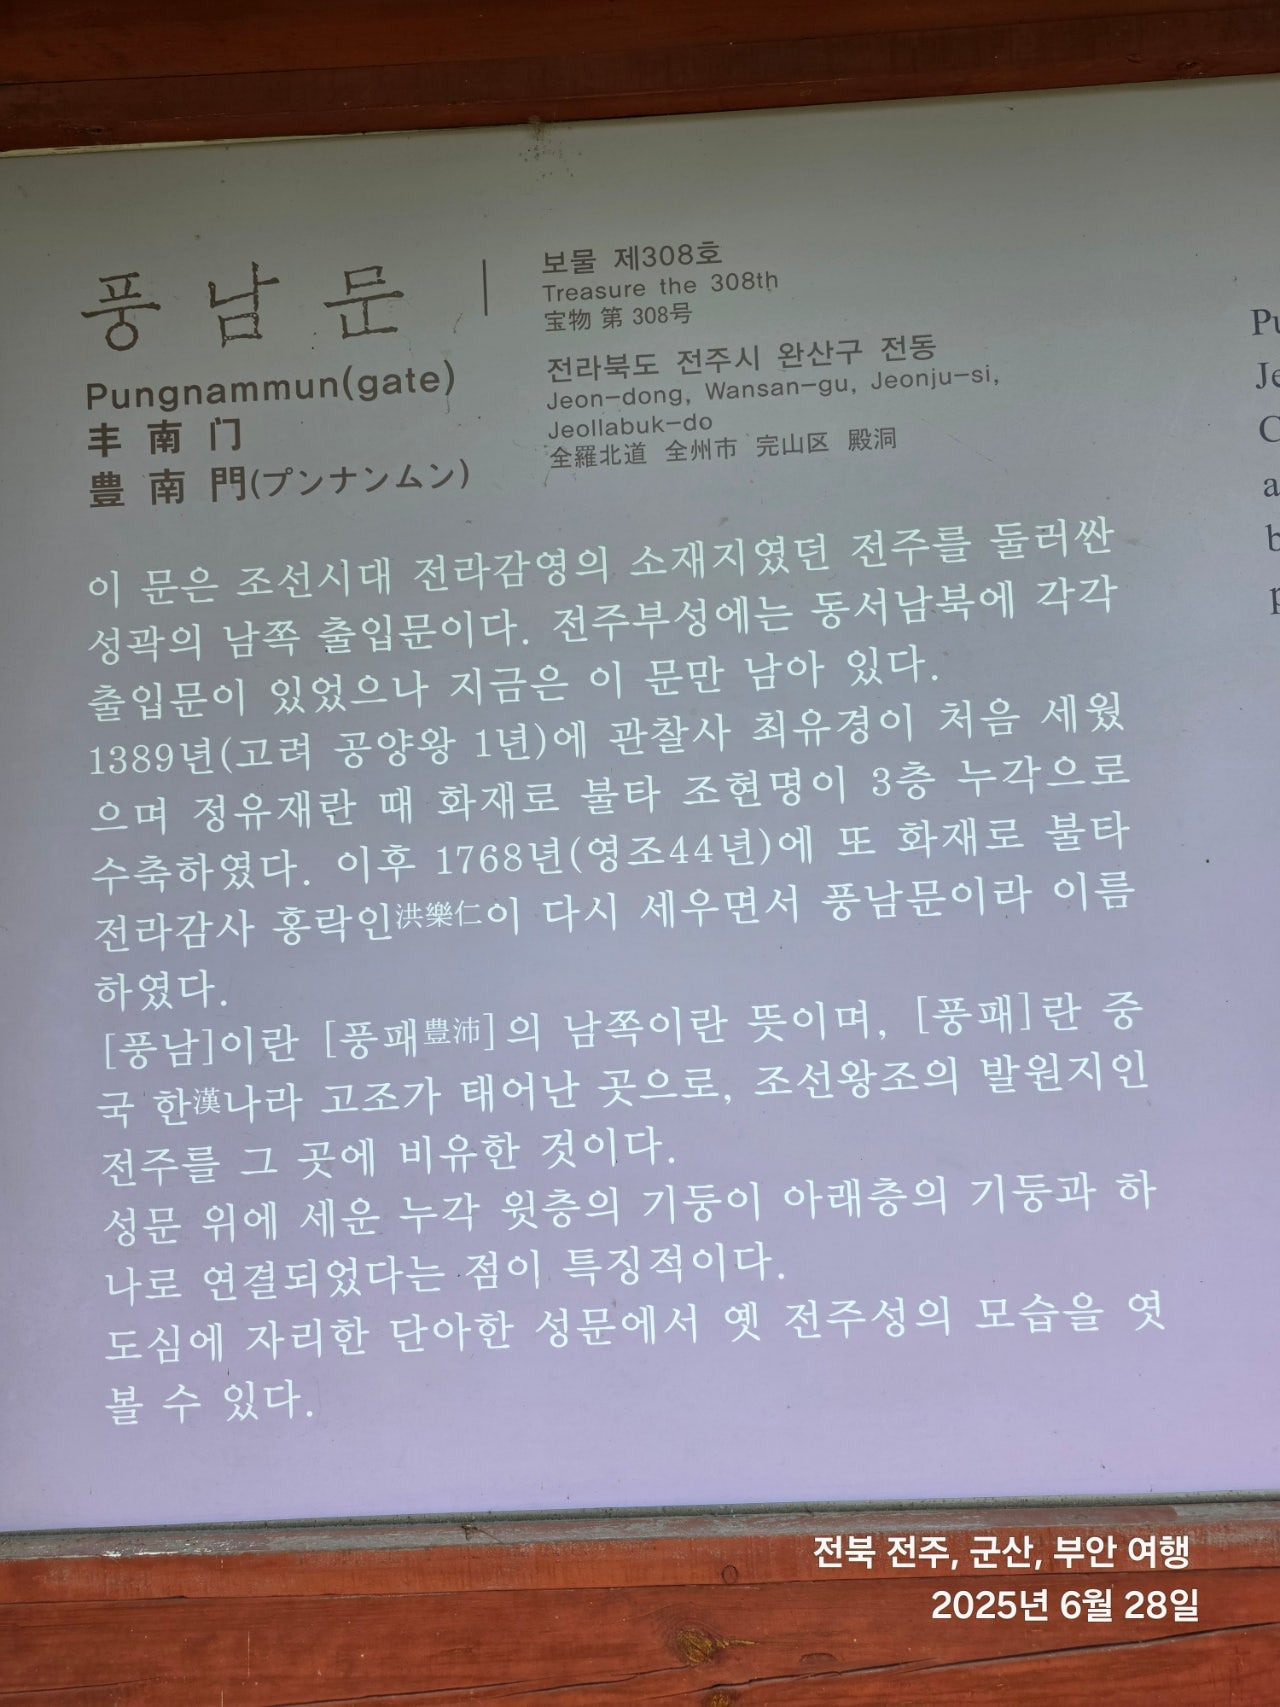 풍 남 문
Pungnammun(gate)
丰 南 门
豊 南 門(プンナンムン)
보물 제308호
Treasure the 308th
宝物 第 308号
전라북도 전주시 완산구 전동
Jeon-dong, Wansan-gu, Jeonju-si,
Jeollabuk-do
全羅北道 全州市 完山区 殿洞
이 문은 조선시대 전라감영의 소재지였던 전주를 둘러싼
성곽의 남쪽 출입문이다. 전주부성에는 동서남북에 각각
출입문이 있었으나 지금은 이 문만 남아 있다.
1389년(고려 공양왕 1년)에 관찰사 최유경이 처음 세웠
으며 정유재란 때 화재로 불타 조현명이 3층 누각으로
수축하였다. 이후 1768년(영조44년)에 또 화재로 불타
전라감사 홍락인洪樂仁이 다시 세우면서 풍남문이라 이름
하였다.
[풍남]이란 [풍패豊沛]의 남쪽이란 뜻이며, [풍패]란 중
국 한漢나라 고조가 태어난 곳으로, 조선왕조의 발원지인
전주를 그 곳에 비유한 것이다.
성문 위에 세운 누각 윗층의 기둥이 아래층의 기둥과 하
나로 연결되었다는 점이 특징적이다.
도심에 자리한 단아한 성문에서 옛 전주성의 모습을 엿
볼 수 있다.
전북 전주, 군산, 부안 여행
2025년 6월 28일